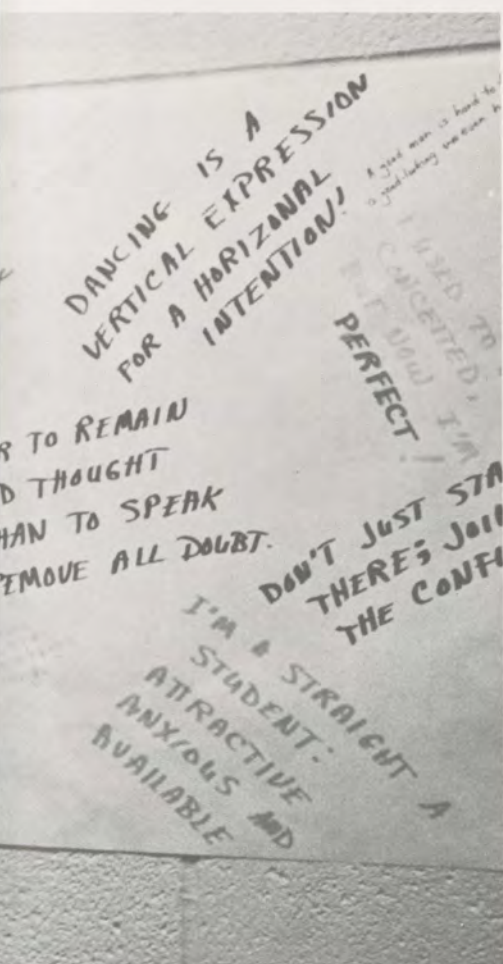 DANCING IS A
VERTICAL EXPRESSION
FOR A HORIZONAL
INTENTION!
A good man is hard to
I USED TO
CONCEITED,
BUT NOW I'M
PERFECT!
R TO REMAIN
D THOUGHT
HAN TO SPEAK
REMOVE ALL DOUBT.
DON'T JUST STA
THERE; JOI
THE CONF
I'M A STRAIGHT A
STUDENT:
ATTRACTIVE
ANXIOUS AND
AVAILABLE